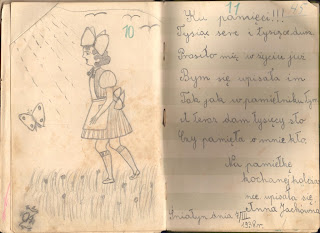 10
11
Ku pamięci!!!
Tysiąc serc i tysiąc dum
Prosiło mię w życiu już
Bym się wpisała im
Tak jak w pamiętniku tym
A teraz dam tysięcy sto
Czy pamięta o mnie kto.
Na pamiątkę
kochanej koleżan
ce wpisała się
Anna
Śniatyn dnia VIII
1938 r.